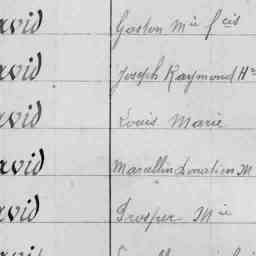 avid Gaston Mie fcis
avid Joseph Raymond Hri
avid Louis Marie
avid Marcellin Donatien M
avid Prosper Mie
avid